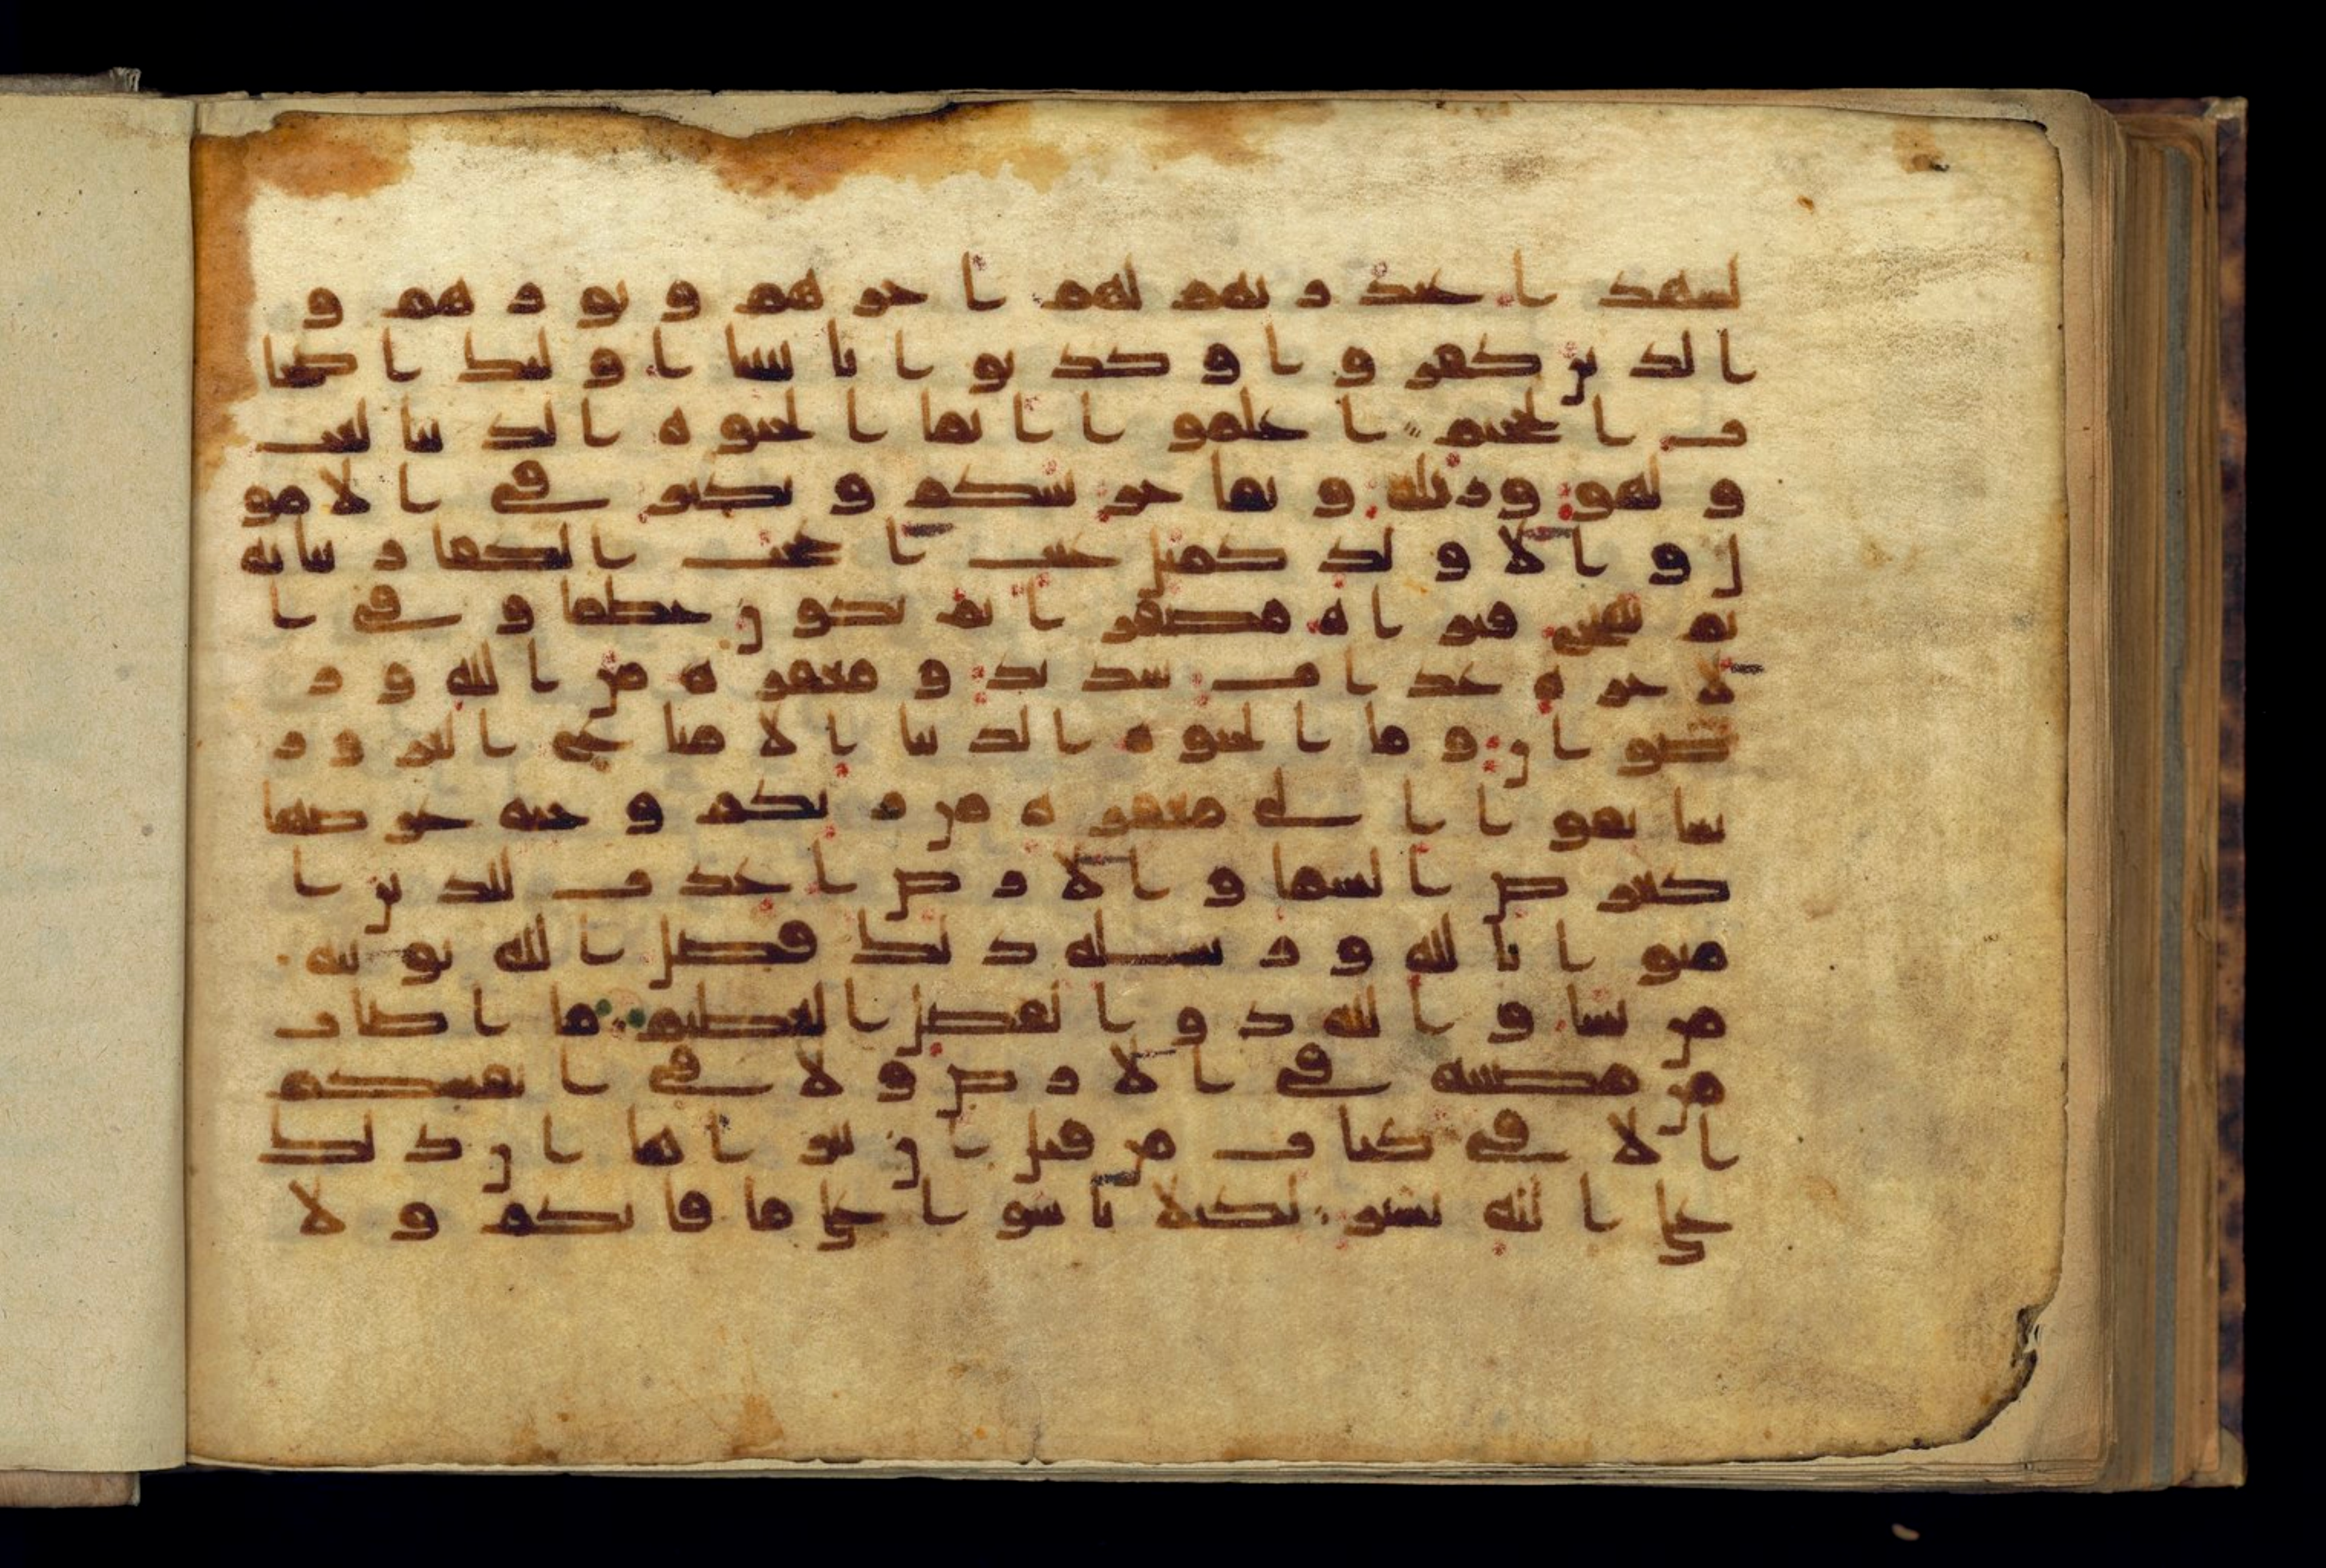 لشهدا عند ربهم لهم اجرهم ونورهم و
الذين كفروا وكذبوا بايتنا اولئك اصحا
ب الجحيم اعلموا انما الحيوة الدنيا لعب
ولهو وزينة وتفاخر بينكم وتكثر في الامو
ل والاولد كمثل غيث اعجب الكفار نباته
ثم يهيج فتراه مصفرا ثم يكون حطما وفي ا
لاخرة عذاب شديد ومغفرة من الله ور
ضوان وما الحيوة الدنيا الا متاع الغرور
سابقوا الى مغفرة من ربكم وجنة عرضها
كعرض السما والارض اعدت للذين ا
منوا بالله ورسله ذلك فضل الله يوتيه
من يشا والله ذو الفضل العظيم ما اصاب
من مصيبة في الارض ولا في انفسكم
الا في كتاب من قبل ان نبراها ان ذلك
على الله يسير لكيلا تاسوا على ما فاتكم ولا